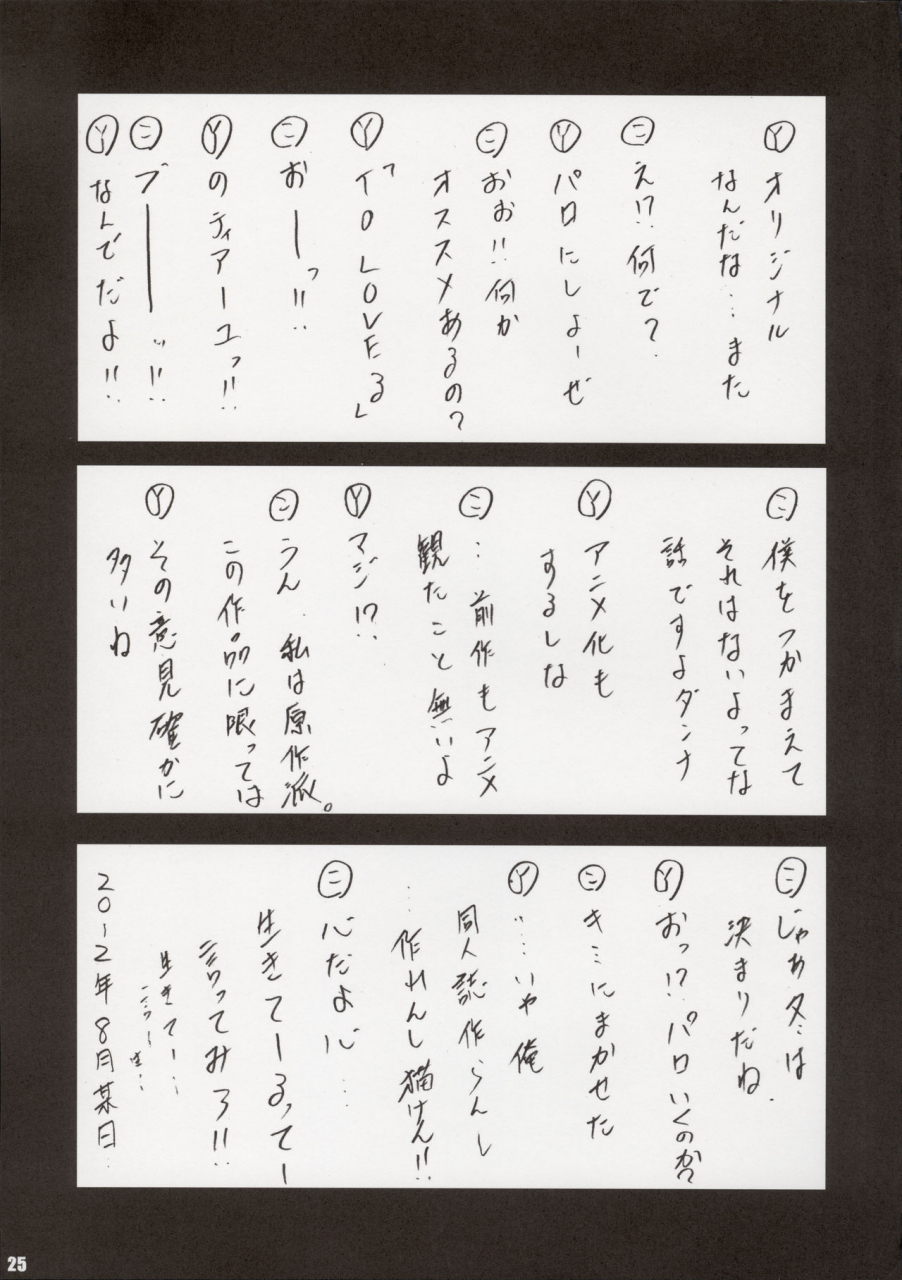 Ⓨオリジナル
なんだな…また
㊁え!?何で?
Ⓨパロにしよーぜ
㊁おお!!何か
オススメあるの?
Ⓨ「TO LOVEる」
㊁おーっ!!
Ⓨのティアーユっ!!
㊁ブーーッ!!
Ⓨなんでだよ!!
㊁僕をつかまえて
それはないよってな
話ですよダンナ
Ⓨアニメ化も
するしな
㊁…前作もアニメ
観たこと無いよ
Ⓨマジ!?
㊁うん.私は原作派。
この作品に限っては
Ⓨその意見確かに
多いね
㊁じゃあ冬は
決まりだね.
Ⓨおっ!?パロいくのか?
㊁キミにまかせた
Ⓨ…いや俺
同人誌作らんし
…作れんし描けん!!
㊁心だよ心…
生きてーるってー
言ってみろ!!
生きてー…
2012年8月某日…
25